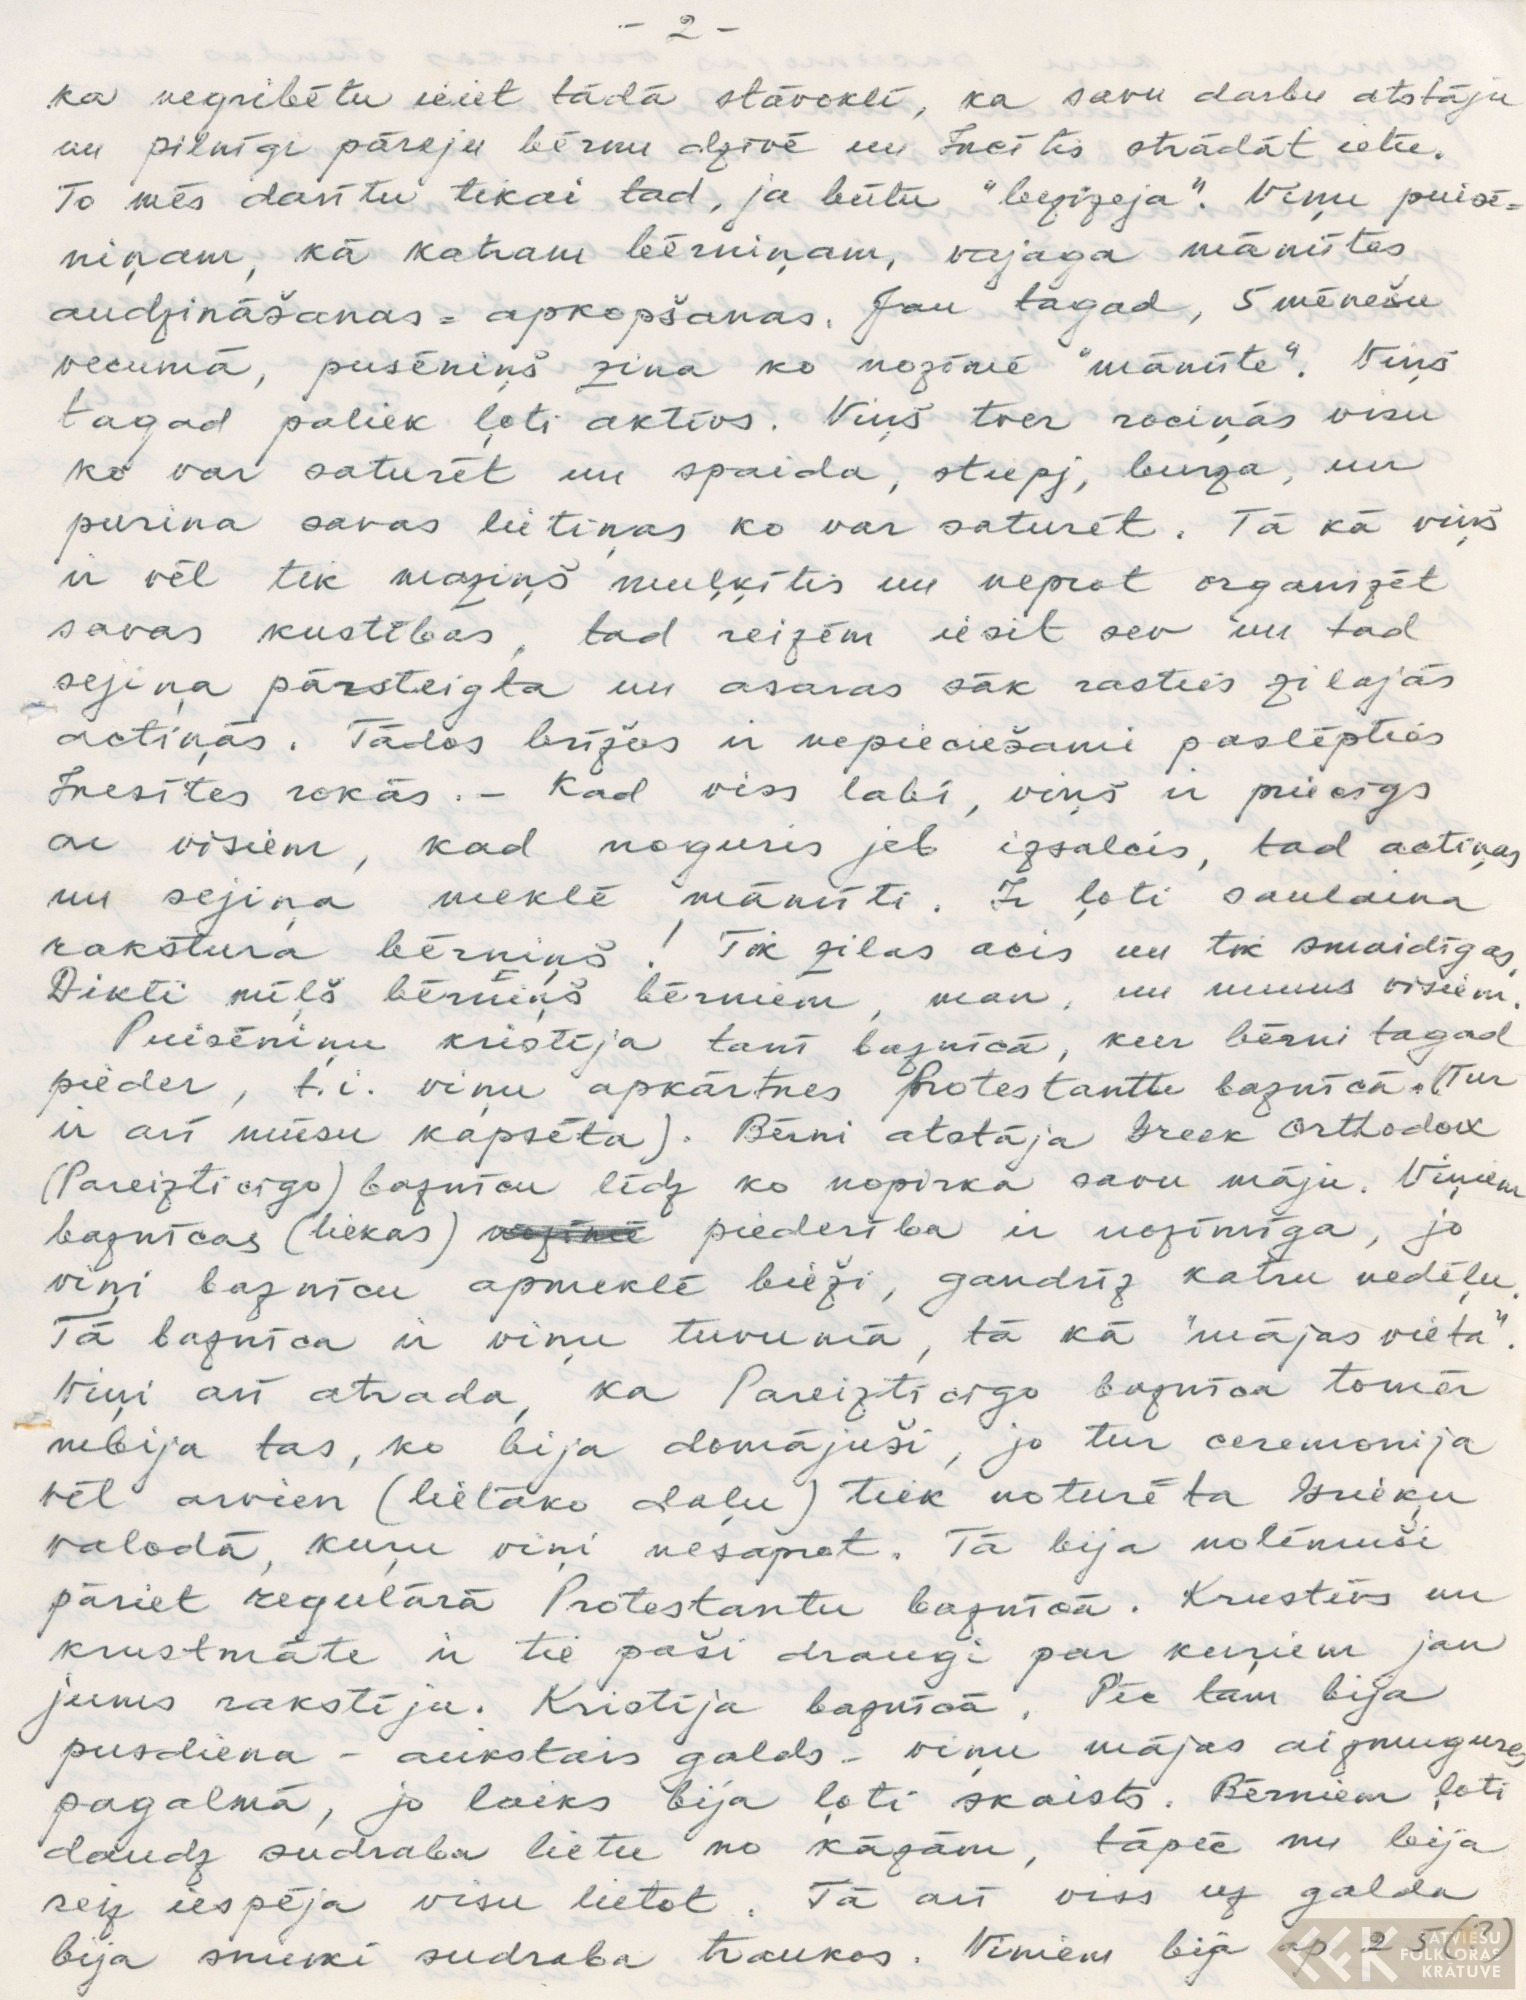 - 2 -
ka negribētu ieiet tādā stāvoklī, ka savu darbu atstāju
un pilnīgi pāreju bērnu dzīvē un Incītis strādāt ietu.
To mēs darītu tikai tad, ja būtu "bezizeja". Viņu puisē=
niņam, kā katram bērniņam, vajaga māmītes
audzināšanas = apkopšanas. Jau tagad, 5 mēnešu
vecumā, pusēniņš zina ko nozīmē "māmīte". Viņš
tagad paliek ļoti aktīvs. Viņš tver rociņās visu
ko var saturēt un spaida, stiepj, burza, un
purina savas lietiņas ko var saturēt. Tā kā viņš
ir vēl tik maziņš muļķītis un neprot organizēt
savas kustības, tad reizēm iesit sev un tad
sejiņa pārsteigta un asaras sāk rasties zilajās
actiņās. Tādos brīžos ir nepieciešami paslēpties
Inesītes rokās. - Kad viss labi, viņš ir priecīgs
ar visiem, kad noguris jeb izsalcis, tad actiņas
un sejiņa meklē māmīti. Ir ļoti saulaina
rakstura bērniņš! Tik zilas acis un tik smaidīgas.
Dikti mīļš bērniņš bērniem, man, un mums visiem.
Puisēniņu kristīja tanī baznīcā, kur bērni tagad
pieder, t.i. viņu apkārtnes Protestantu baznīcā. (Tur
ir arī mūsu kapsēta). Bērni atstāja Greek Orthodox
(Pareizticīgo) baznīcu līdz ko nopirka savu māju. Viņiem
baznīcas (liekas) piederība ir nozīmīga, jo
viņi baznīcu apmeklē bieži, gandrīz katru nedēļu.
Tā baznīca ir viņu tuvumā, tā kā "mājas vieta".
Viņi arī atrada, ka Pareizticīgo baznīca tomēr
nebija tas, ko bija domājuši, jo tur ceremonija
vēl arvien (lielāko daļu) tiek noturēta Grieķu
valodā, kuŗu viņi nesaprot. Tā bija nolēmuši
pāriet regulārā Protestantu baznīcā. Krustēvs un
krustmāte ir tie paši draugi par kuŗiem jau
jums rakstīju. Kristīja baznīcā. Pēc tam bija
pusdiena - aukstais galds - viņu mājas aizmugures
pagalmā, jo laiks bija ļoti skaists. Bērniem ļoti
daudz sudraba lietu no kāzām, tāpēc nu bija
reiz iespēja visu lietot. Tā arī viss uz galda
bija smuki sudraba traukos. Viņiem bija ap 25 (?)
LATVIEŠU
FOLKLORAS
KRĀTUVE